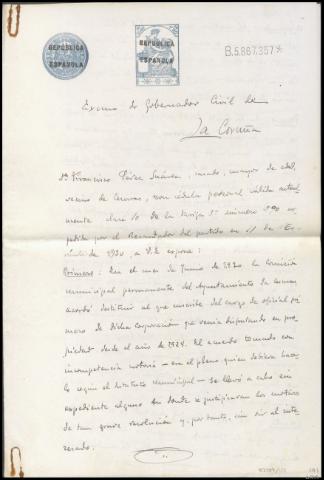 REPÚBLICA
ESPAÑOLA
REPÚBLICA
ESPAÑOLA
B.5.867.357
Excmo Sr Gobernador Civil de
La Coruña
Dn Francisco Pérez Suárez, casado, mayor de edad,
vecino de con cédula personal
clase de la tarifa número
pedida por el Recaudador del partido en 11 de
de 1930, a V.E. expone:
Primero: En el mes de Junio de 1930 la Comisión
municipal permanente del Ayuntamiento de
acordó destituir al que suscribe del cargo de oficial pri-
mero de dicha corporación que venía disfrutando en pro-
piedad desde el año de 1924. El acuerdo tomado con
incompetencia notoria – era el pleno quien debiera hacer-
lo según el Estatuto municipal – se llevó a cabo sin
expediente alguno en donde se justificaran los motivos
de tan grave resolución y, por tanto, sin oir al inte-
resado.